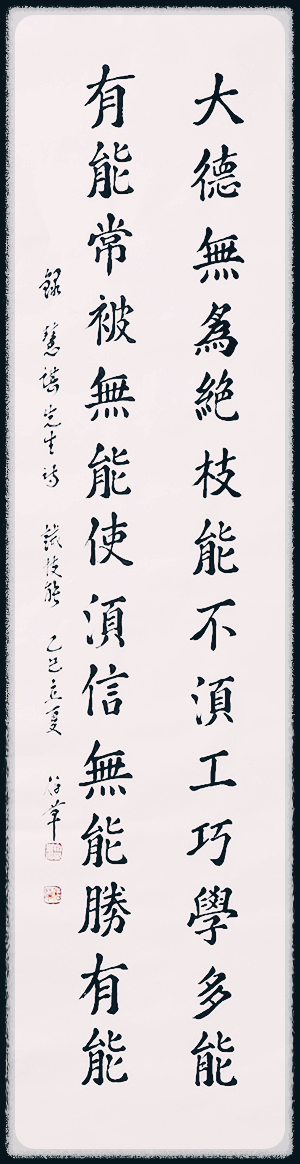 大德無為絕枝能不須工巧學多能
有能常被無能使須信無能勝有能
錄慧謀先生詩 誡技能 乙巳立夏